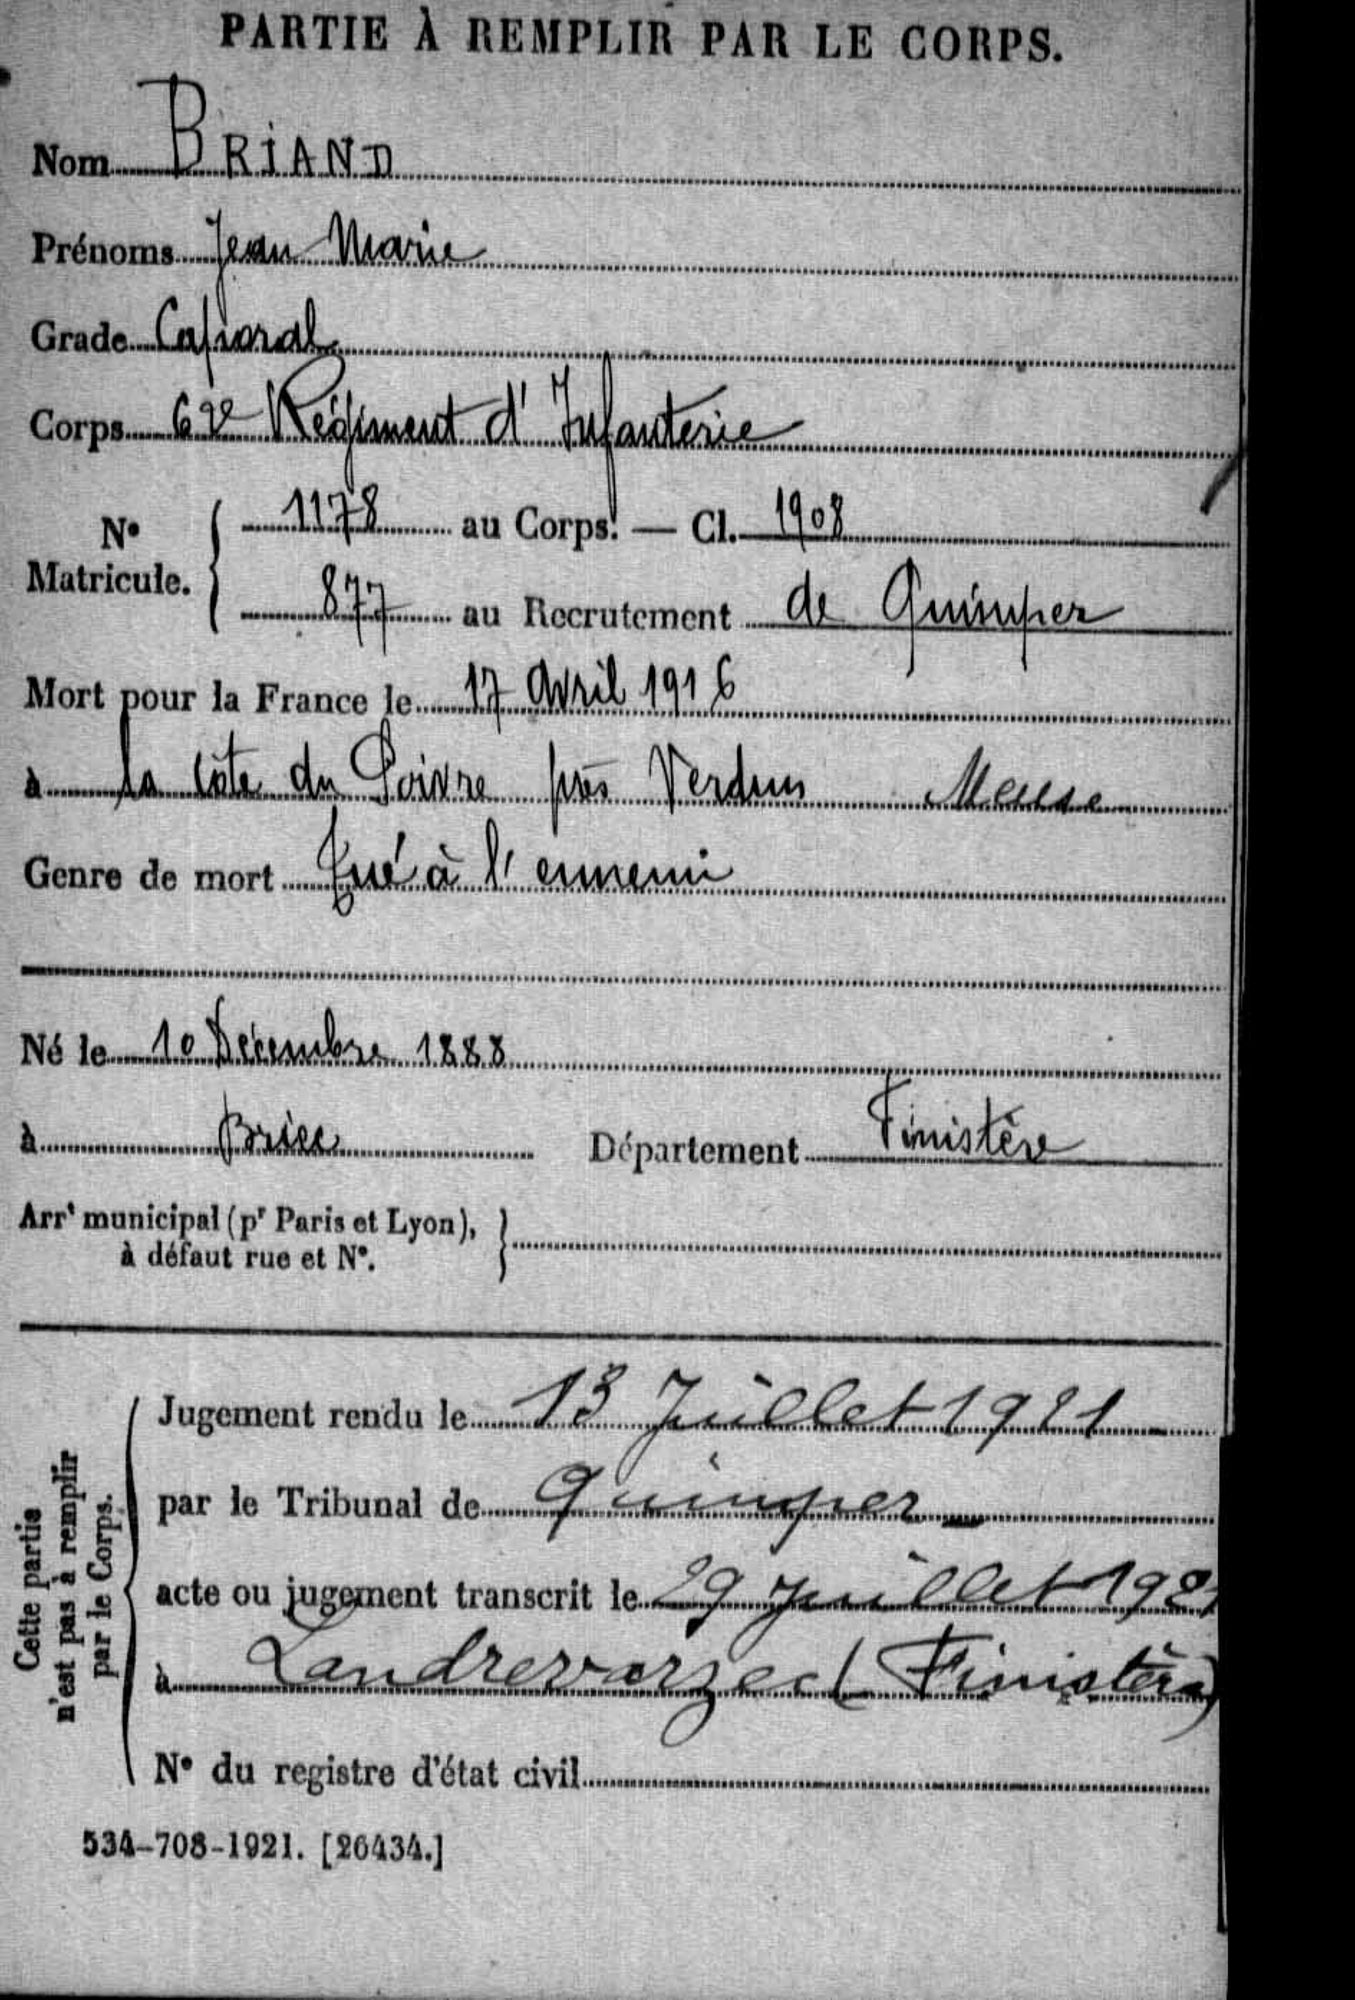 PARTIE À REMPLIR PAR LE CORPS.
Nom BRIAND
Prénoms Jean Marie
Grade Caporal
Corps 62e Régiment d'Infanterie
N° Matricule. { 1178 au Corps. — Cl. 1908
877 au Recrutement de Quimper
Mort pour la France le 17 Avril 1916
à la côte du Poivre près Verdun Meuse
Genre de mort Tué à l'ennemi
Né le 10 Décembre 1888
à Briec Département Finistère
Arrt municipal (pr Paris et Lyon),
à défaut rue et N°.
Cette partie
n'est pas à remplir
par le Corps.
Jugement rendu le 13 Juillet 1921
par le Tribunal de Quimper
acte ou jugement transcrit le 29 Juillet 1921
à Landrevarzec (Finistère)
N° du registre d'état civil
534-708-1921. [26434.]